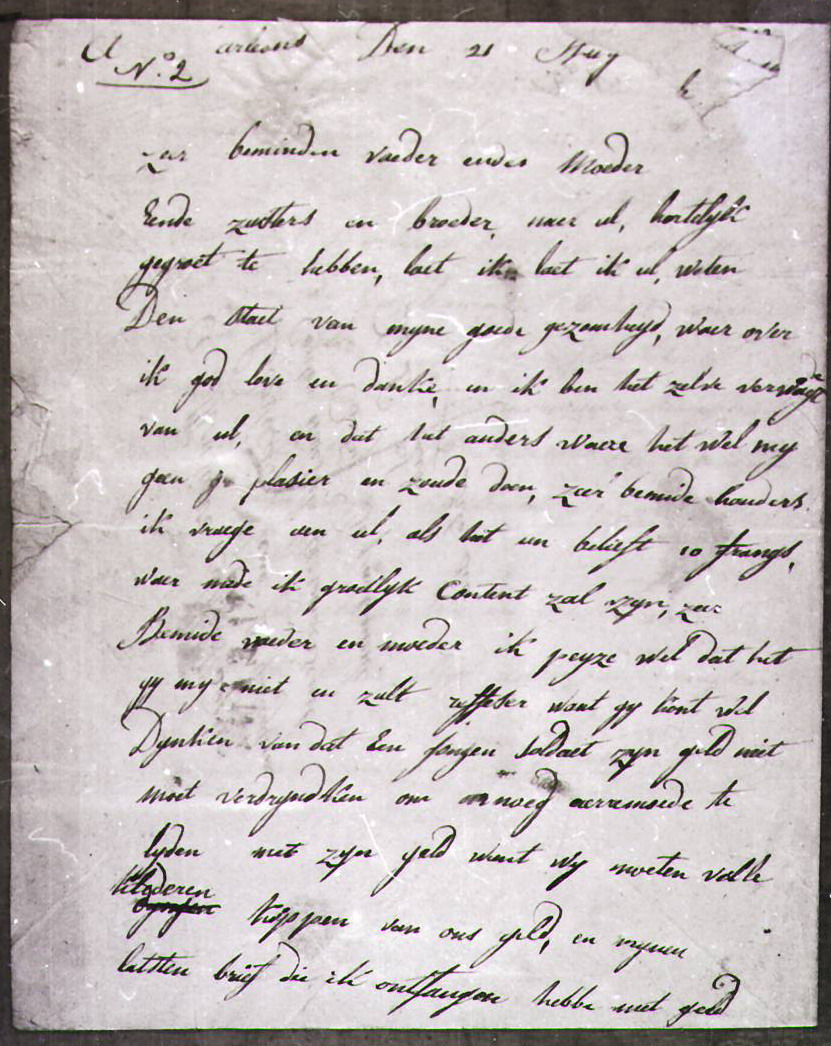 N.o 2 Den 21
zeer beminden vaeder ende Moeder
Eende zusters en broeder, naer ul, hertelyk
gegroet te hebben, laet ik laet ik ul, weten
Den staet van myne goede gezondhyd, waer over
ik god love en danke, en ik ben het zelve verwagte
van ul, en dat het anders waere het wel my
geen plasier en zoude doen, zeer bemide houders
ik vraege aen ul, als het un belieft 10 frangs,
waer mede ik grodlyk Content zal zyn, zeer
Bemide vaeder en moeder ik peyze wel dat het
gy my niet en zult want gy kont wel
Dynken van dat Een jongen soldaet zyn geld niet
moet verdryndken om genoeg aerremoede te
lyden met zyn geld want wy moeten volle
klederen koppen van ons geld, en mynen
lasten brief die ik ontfangen hebbe met geld